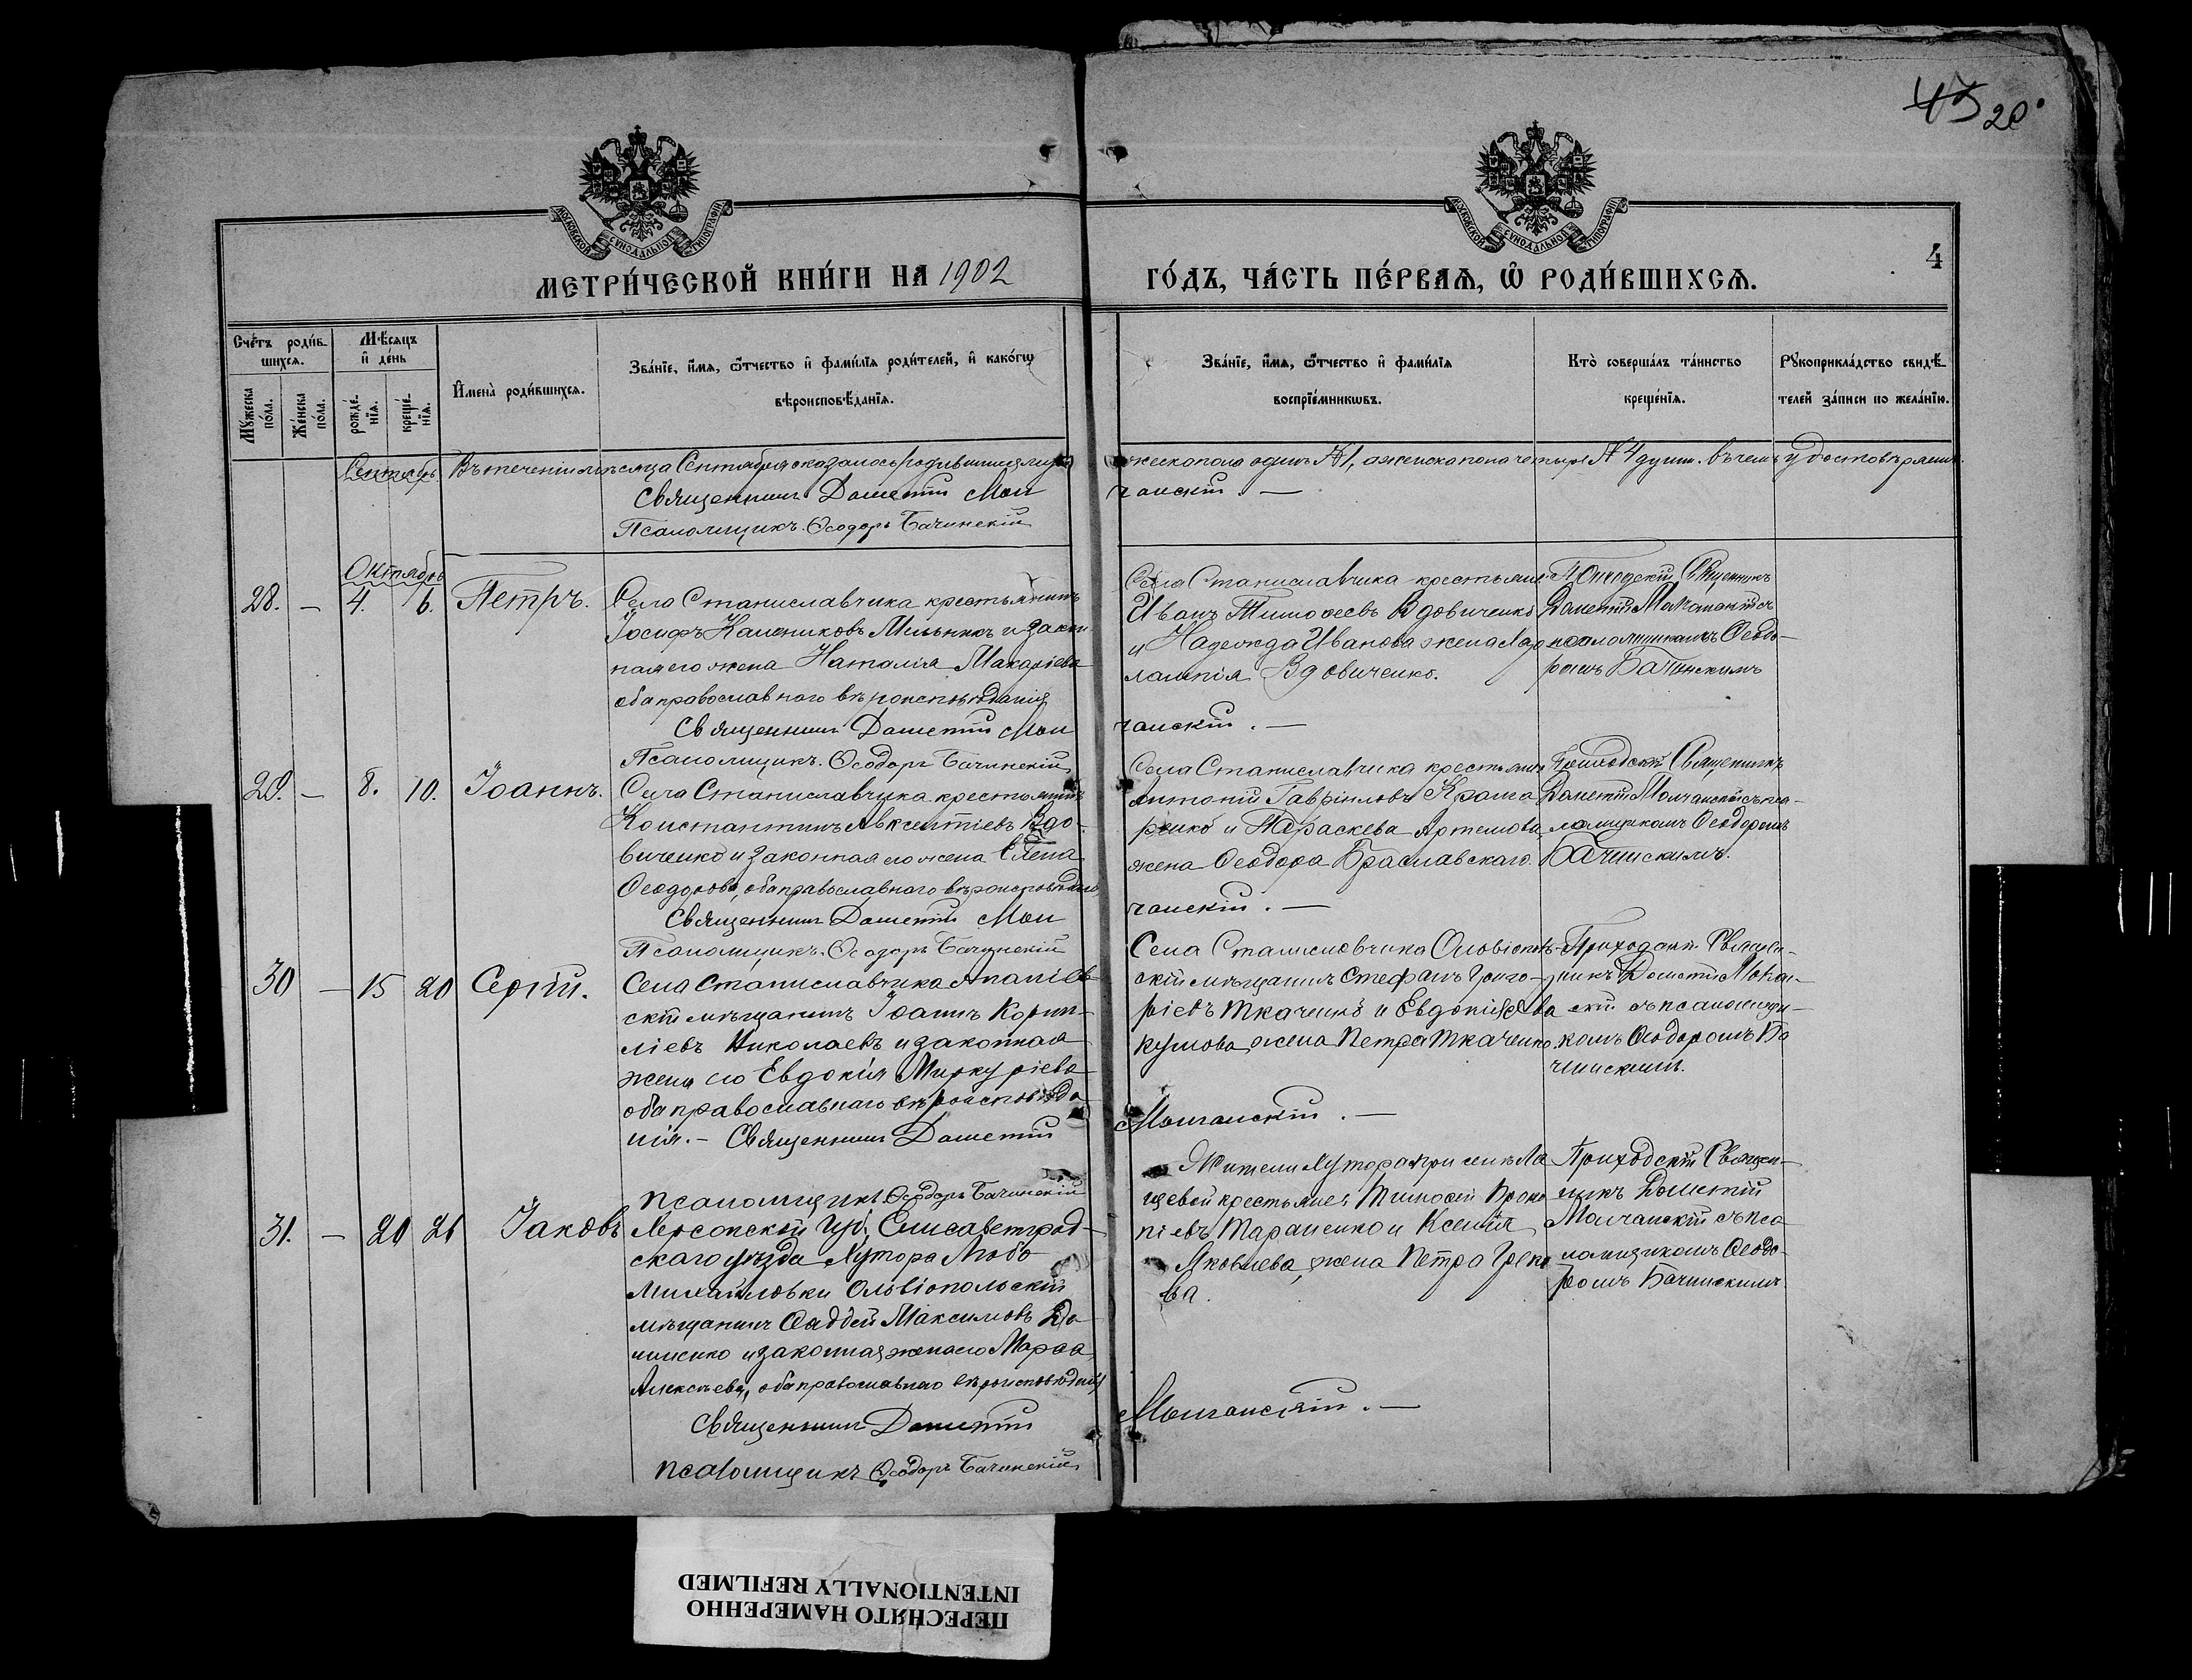 43 20
МОСКОВСКОЙ СѴНОДАЛЬНОЙ ТИПОГРАФІИ
МОСКОВСКОЙ СѴНОДАЛЬНОЙ ТИПОГРАФІИ
4
МЕТРИ́ЧЕСКОЙ КНИ́ГИ НА 1902
ГО́ДЪ, ЧА́СТЬ ПЕ́РВАѦ, Ѡ РОДИ́ВШИХСѦ.
Счётъ роди́в-
шихся.
Мꙋ́жеска по́ла.
Же́нска по́ла.
Мѣ́сяцъ
и де́нь
рожде́-
нїя.
креще́-
нїя.
Имена̀ роди́вшихся.
Зва́нїе, и́мя, ѿчество и фами́лїя роди́телей, и како́гѡ
вѣроисповѣ́данїя.
Зва́нїе, и́мя, ѿчество и фами́лїя
воспрїе́мниковъ.
Кто̀ соверша́лъ та́инство
креще́нїя.
Рꙋкоприкла́дство свидѣ́-
телей за́писи по жела́нїю.
Сентябрь
Въ теченіи мѣсяца Сентября оказалось родившихся му
жеска пола одинъ № 1, а женска пола четыре № 4 душ. въ чемъ удостовѣряемъ.
Священникъ Дометій Мол
чанскій. —
Псаломщикъ Ѳеодоръ Бачинскій
Октябрь
28. — 4. 6. Петръ.
Села Станиславчика крестьянинъ
Іосифъ Мельникъ и закон
ная его жена Наталія Макаріева
оба православнаго вѣроисповѣданія
Священникъ Дометій Мол
Псаломщикъ Ѳеодоръ Бачинскій
Села Станиславчика крестьяне
Иванъ Тимоѳеевъ Вдовиченко
и Надежда Иванова жена
Вдовиченко.
чанскій. —
Священникъ
Дометій
псаломщикомъ Ѳеодо-
ромъ Бачинскимъ
29. — 8. 10. Іоаннъ.
Села Станиславчика крестьянинъ
Константинъ Авксентіевъ Вдо-
виченко и законная его жена Елена
Ѳеодорова, оба православнаго вѣроисповѣданія
Священникъ Дометій Мол
Псаломщикъ Ѳеодоръ Бачинскій
Села Станиславчика крестьяне
Антоній Гавріиловъ Крама
ренко и Параскева Артемова
жена Ѳеодора Браславскаго.
чанскій. —
Приходскій Священникъ
Дометій Молчанскій съ пса-
ломщикомъ Ѳеодоромъ
Бачинскимъ.
30 — 15 20 Сергій.
Села Станиславчика Ананіев-
скій мѣщанинъ Іоаннъ Корни-
ліевъ Николаевъ и законная
жена его Евдокія Меркуріева
оба православнаго вѣроисповѣда
нія. — Священникъ Дометій
псаломщикъ Ѳеодоръ Бачинскій
Села Станиславчика Ольвіополь-
скій мѣщанинъ Стефанъ Григо-
ріевъ Ткаченко и Евдокія Ява
кумова жена Петра Ткаченко.
Молчанскій. —
Приходскій Священ-
никъ Дометій Молчан-
скій съ псаломщи-
комъ Ѳеодоромъ Ба
чинскимъ.
31. — 20 21 Іаковъ
Херсонской губ. Елисаветград-
скаго уѣзда Хутора Любо-
Михайловки Ольвіопольскій
мѣщанинъ Ѳаддей Максимовъ
и законная жена его Марѳа
Алексѣева, оба православнаго вѣроисповѣданія
Священникъ Дометій
псаломщикъ Ѳеодоръ Бачинскій
Жители Хутора при
крестьяне: Тимоѳей Проко
піевъ Тараненко и Ксенія
Яковлева, жена Петра Греко
ва.
Молчанскій. —
Приходскій Священ-
никъ Дометій
Молчанскій съ пса
ломщикомъ Ѳеодо-
ромъ Бачинскимъ
ПЕРЕСНЯТО НАМЕРЕННО
INTENTIONALLY REFILMED